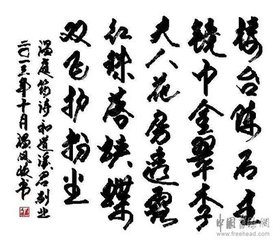 楼台陈后主
镜中金翠李
夫人花房透露
红珠落蛱蝶
双飞护粉尘
温庭筠诗和道溪君别业
二〇一三年十月温
书
www.freehead.com